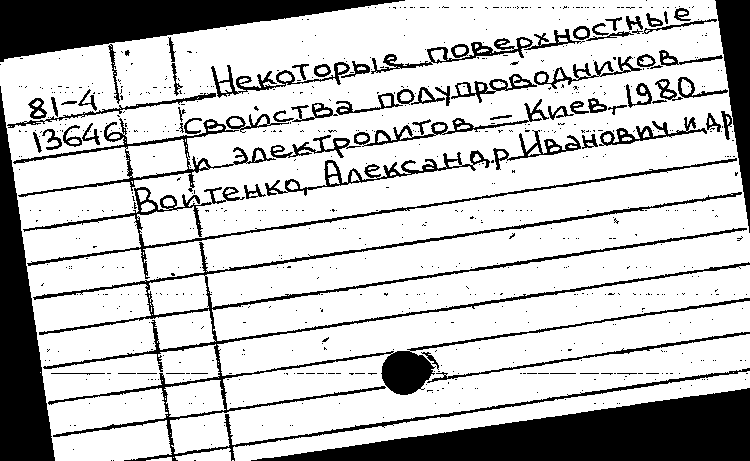 Некоторые поверхностные
81-4 свойства полупроводников
13646 и электролитов – Киев, 1980.
Войтенко, Александр Иванович и др